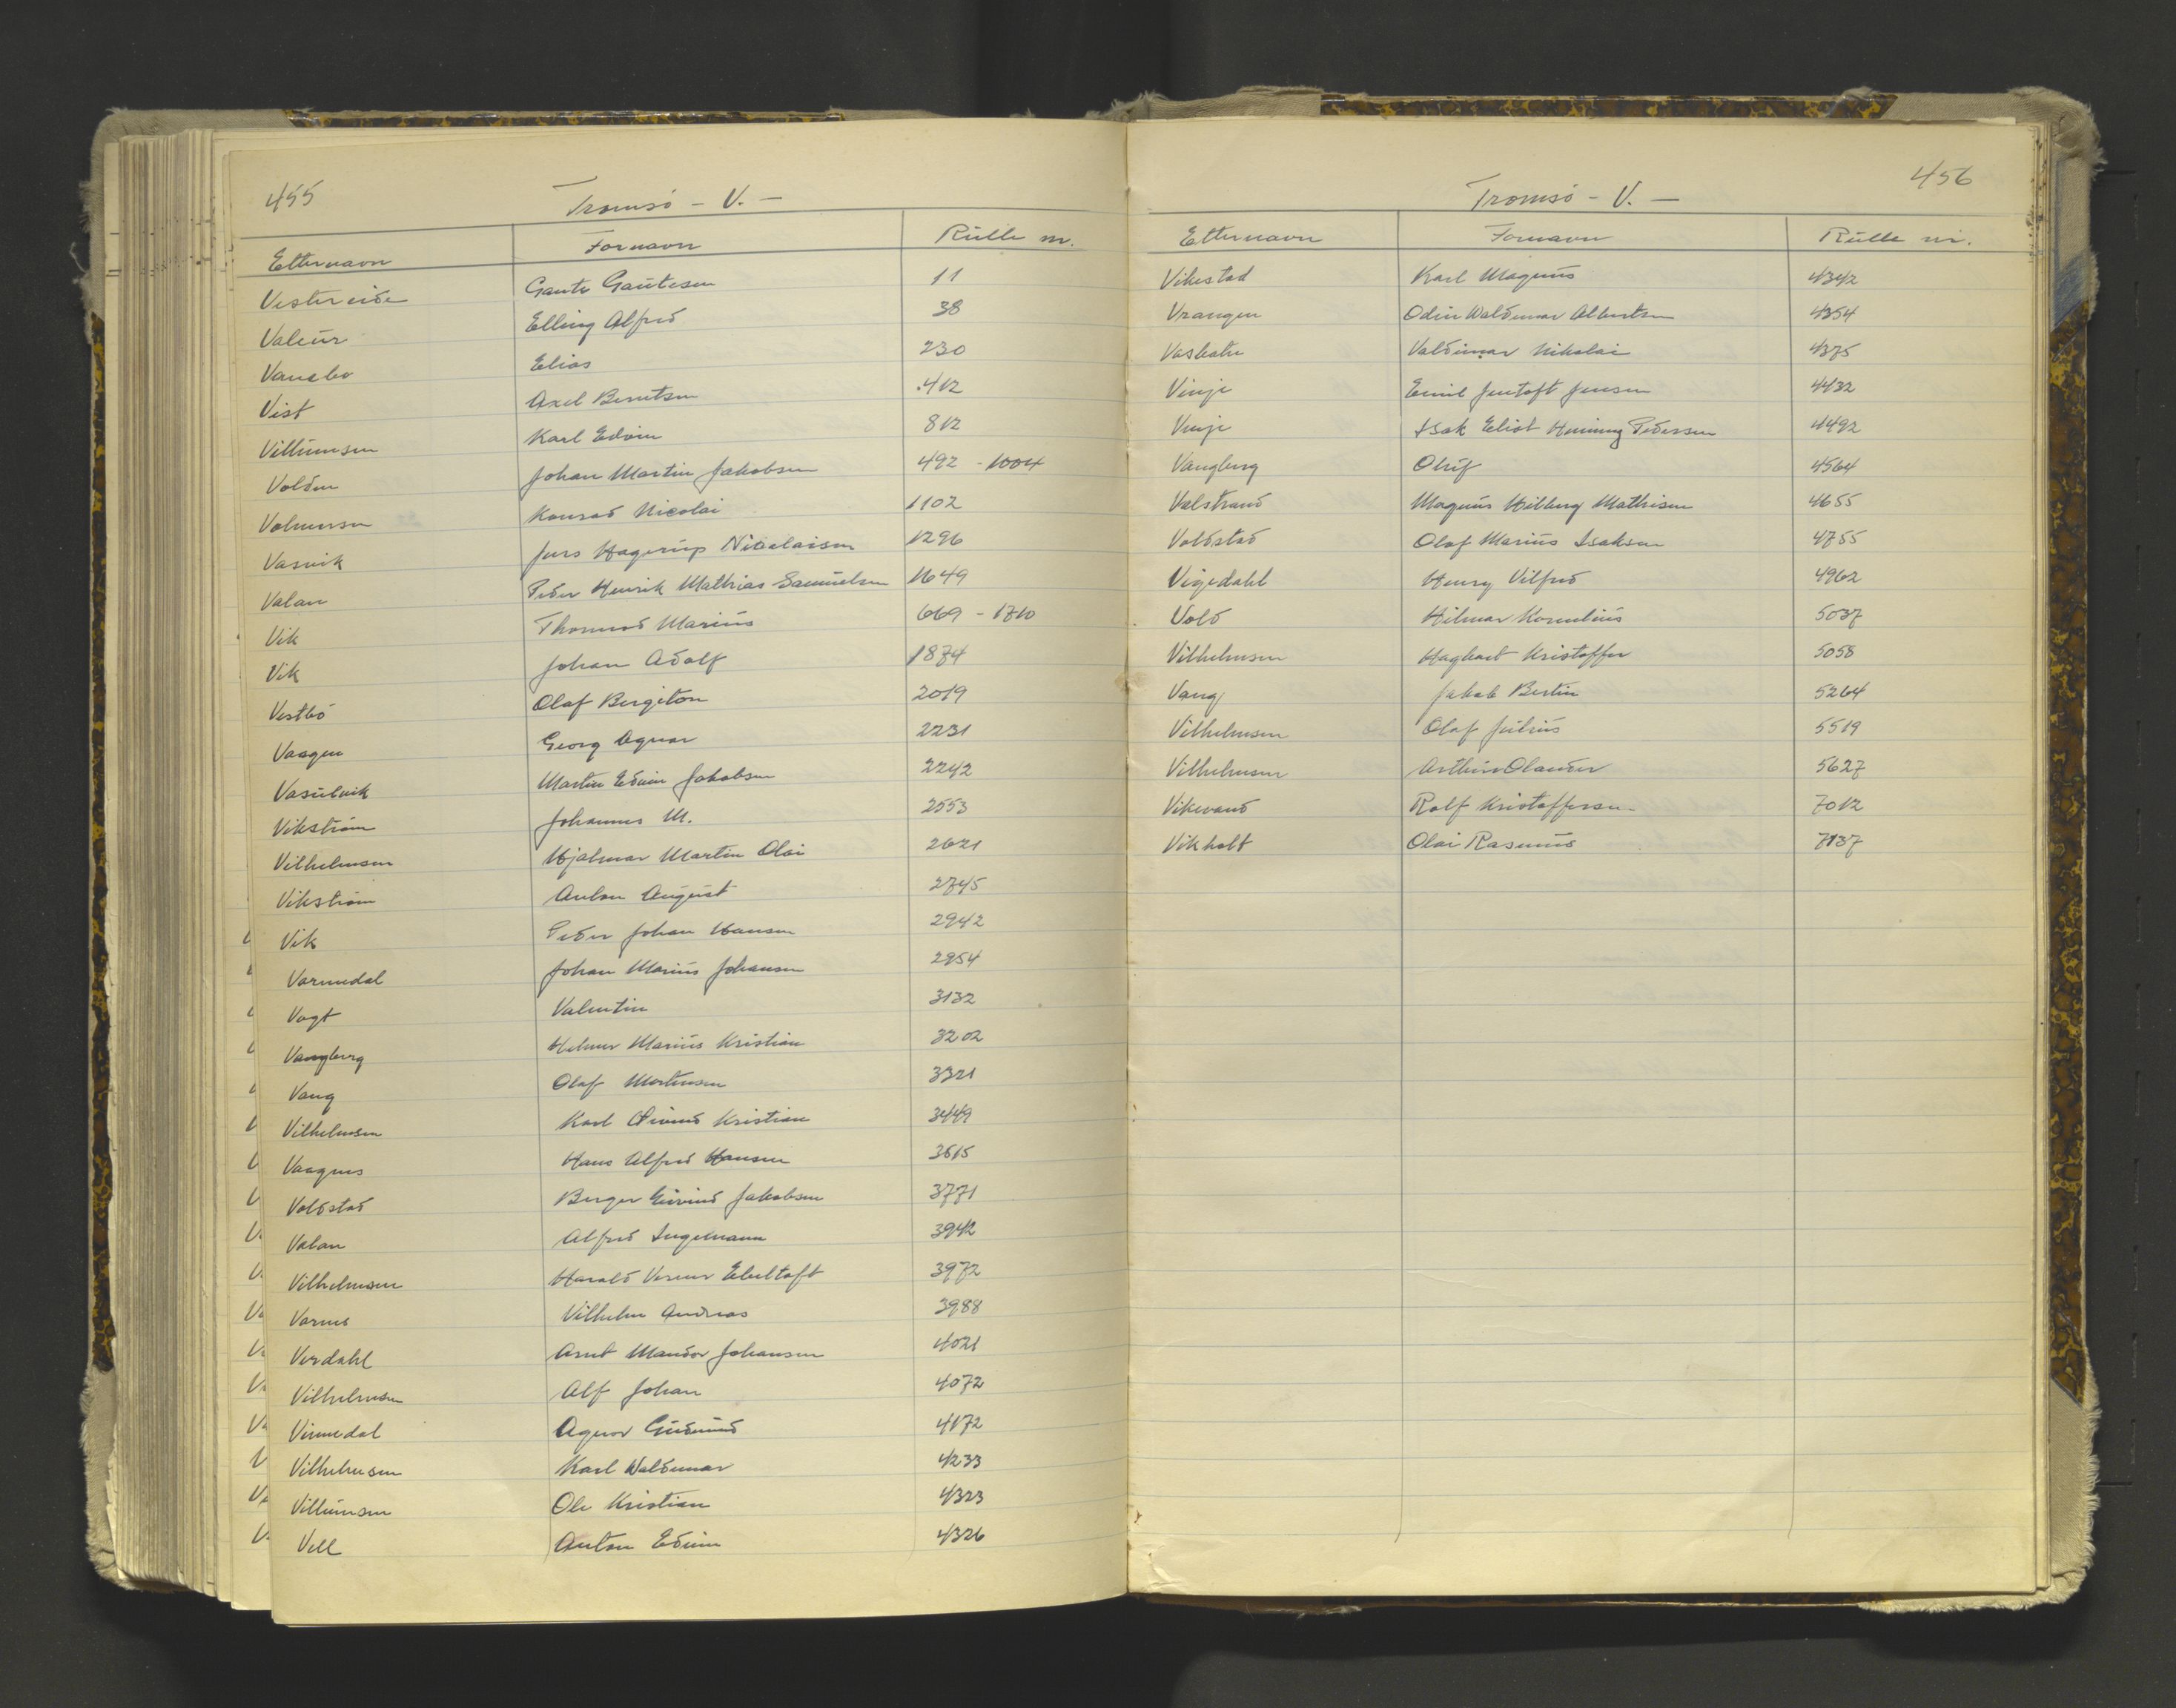 455
Tromsö - V. -
Etternavn Fornavn Rulle nr.
Vestereide Gaute Gautesen 11
Valeur Elling Alfred 38
Vangbo Elias 230
Vist Axel Berntsen 412
Villumsen Karl Edvin 812
Volden Johan Martin Jakobsen 492 - 1004
Volmersen Konrad Nicolai 1102
Vasvik Jens Hagerup Nicolaisen 1296
Valan Peder Henrik Mathias Samuelsen 1649
Vik Thomas Marius 669 - 1710
Vik Johan Adolf 1874
Vestbö Olaf Bergiton 2019
Vaagen Georg Agnar 2231
Martin Edvin Jakobsen 2242
Vikström Johannes M. 2553
Vilhelmsen Hjalmar Martin Olai 2621
Vikström Anton August 2745
Vik Peder Johan Hansen 2942
Varmedal Johan Marius Johansen 2954
Vogt Valentin 3132
Vangberg Helmer Marius Kristian 3202
Vang Olaf Mortensen 3321
Vilhelmsen Karl Eivind Kristian 3449
Vaagnes Hans Alfred Hansen 3615
Voldstad Berger Eivind Jakobsen 3771
Valan Alfred Ingemann 3942
Vilhelmsen Harald Verner Ebeltoft 3972
Varnes Vilhelm Andreas 3988
Verdahl Arnt Mandor Johansen 4021
Vilhelmsen Alf Johan 4072
Vinnedal Agnor Gudmund 4172
Vilhelmsen Karl Waldemar 4233
Villumsen Ole Kristian 4323
Vell Anton Edvin 4326
456
Tromsö - V. -
Etternavn Fornavn Rulle nr.
Vikestad Karl Magnus 4342
Vrangen Odin Waldemar Albertsen 4354
Vasbotn Valdemar Nikolai 4375
Vinje Emil Jentoft Jensen 4432
Vinje Isak Eliot Henning Pedersen 4492
Vangberg Oluf 4564
Valstrand Magnus Hilberg Mathisen 4655
Voldstad Olaf Marius Isaksen 4755
Vigedahl Henry Vilfred 4962
Vold Hilmar Kornelius 5037
Vilhelmsen Hagbart Kristoffer 5058
Vang Jakob Bertin 5264
Vilhelmsen Olaf Julius 5519
Vilhelmsen Arthur Olander 5627
Vikevand Rolf Kristoffersen 7012
Vikholt Olai Rasmus 7137